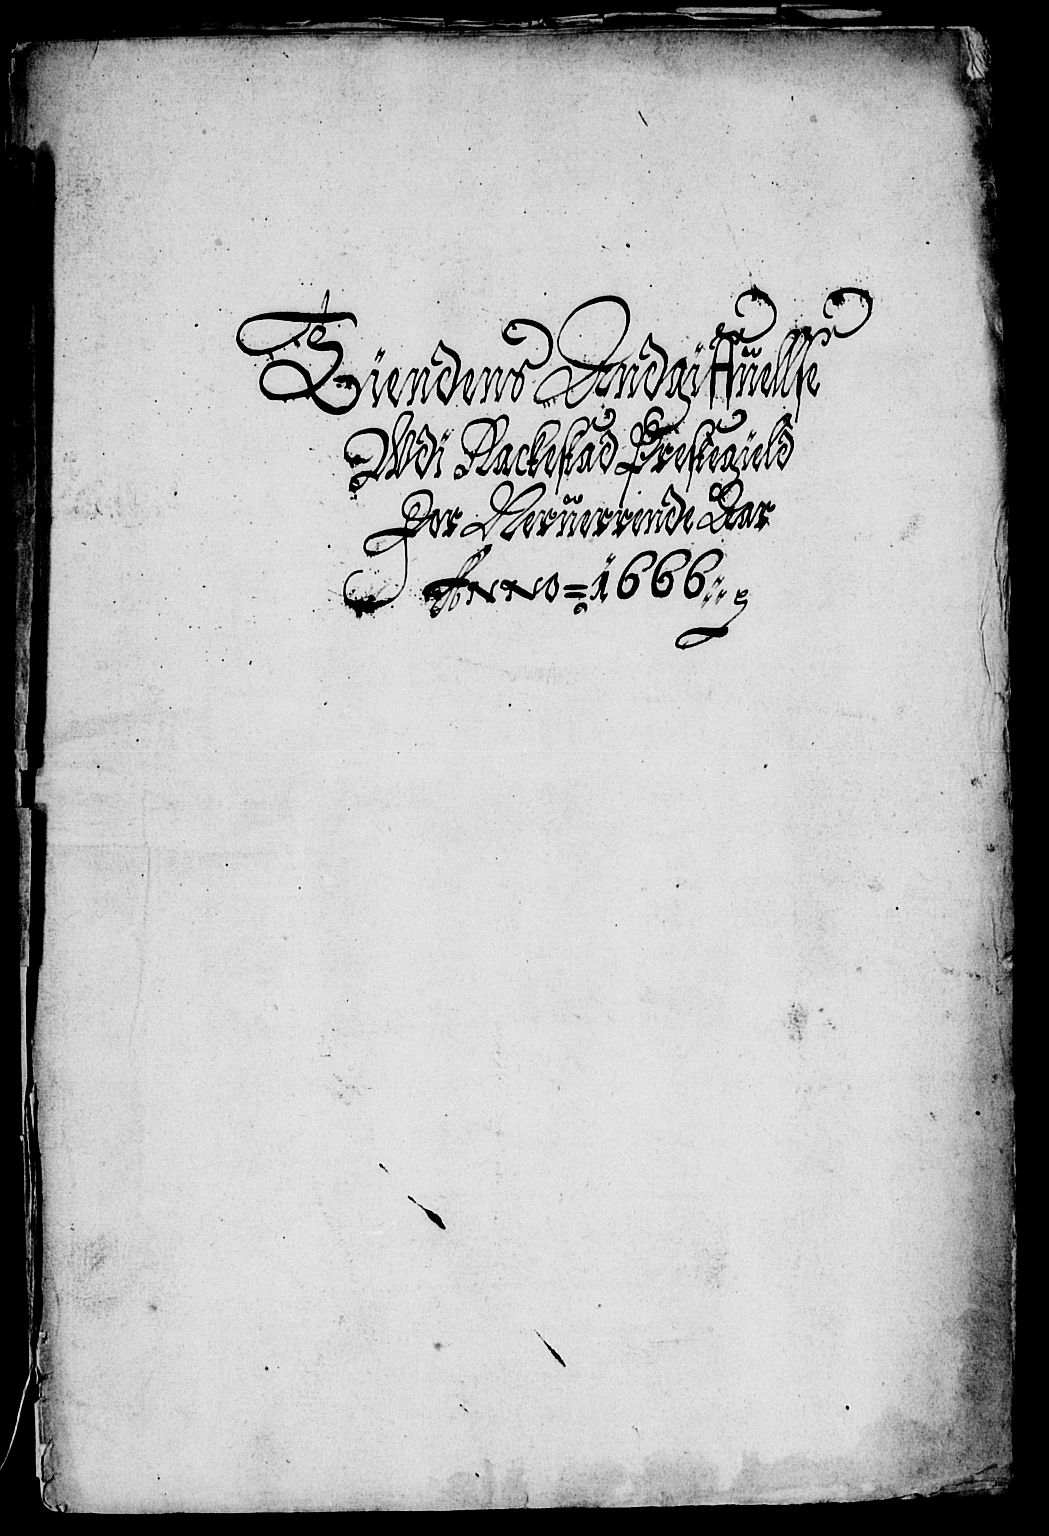 Tiendens Andgiffuellse
Wdi Rackestad Prestegield
For Neruerrende Aar
Anno = 1666